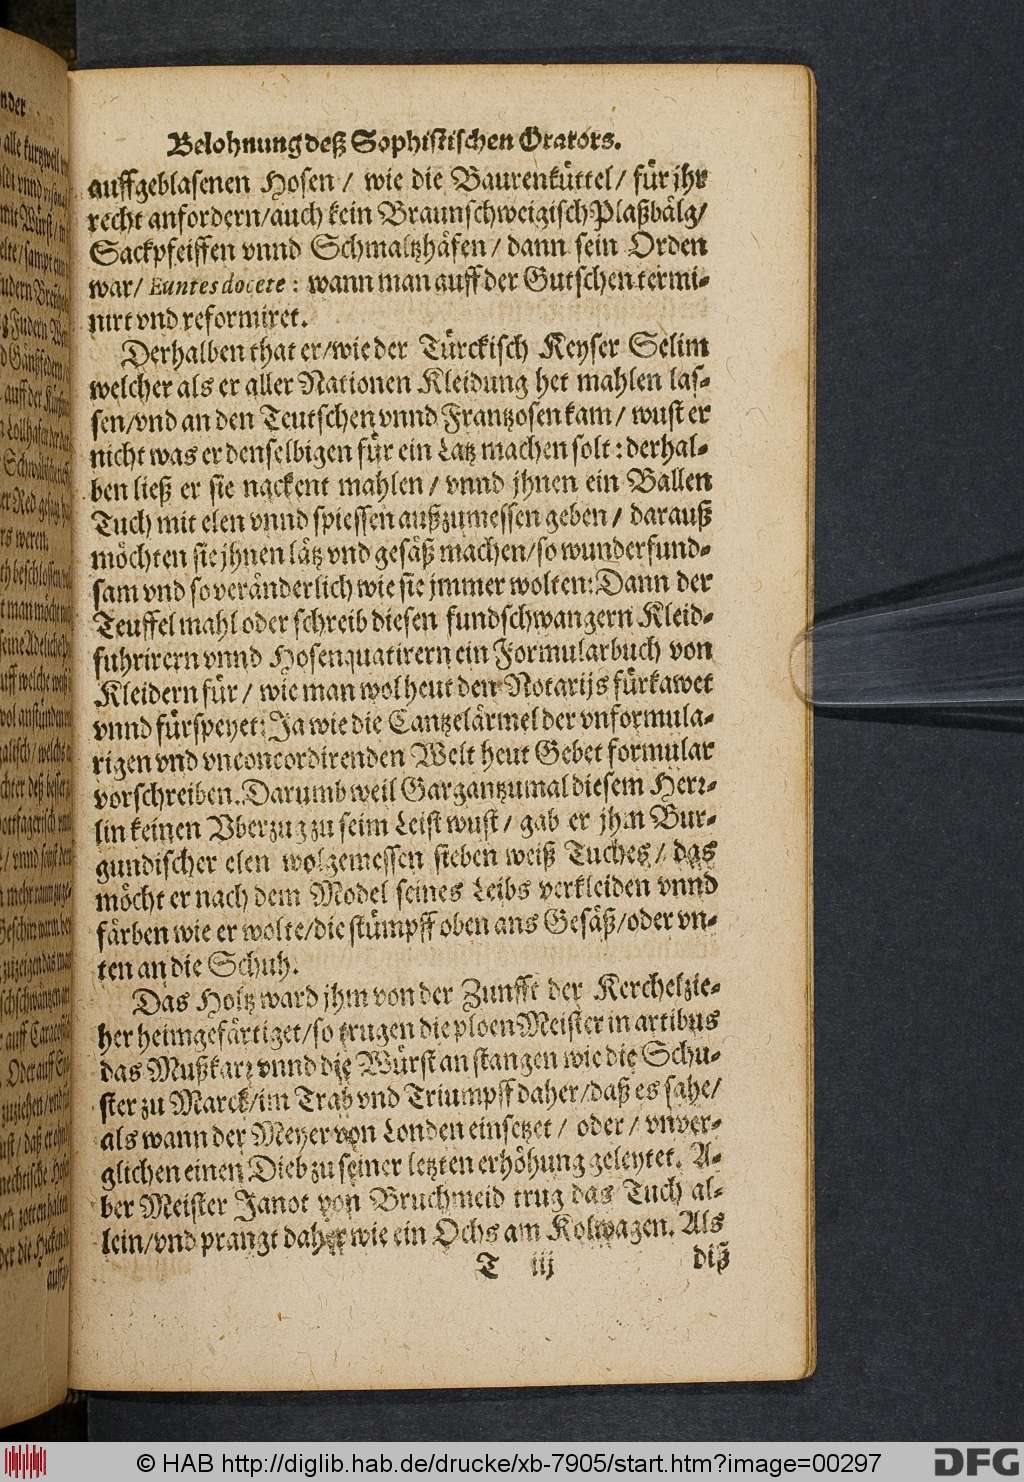 Belohnung deß Sophistischen Orators.
auffgeblasenen Hosen / wie die Baurenküttel / für jhr
recht anfordern/auch kein Braunschweigisch Plaßbälg/
Sackpfeiffen vnnd Schmaltzhäfen / dann sein Orden
war/ Euntes docete : wann man auff der Gutschen termi-
nirt vnd reformiret.
Derhalben that er/wie der Türckisch Keyser Selim
welcher als er aller Nationen Kleidung het mahlen las-
sen/vnd an den Teutschen vnnd Frantzosen kam / wust er
nicht was er denselbigen für ein Latz machen solt : derhal-
ben ließ er sie nackent mahlen / vnnd jhnen ein Ballen
Tuch mit elen vnnd spiessen außzumessen geben / darauß
möchten sie jhnen lätz vnd gesäß machen/so wunderfund-
sam vnd so veränderlich wie sie jmmer wolten: Dann der
Teuffel mahl oder schreib diesen fundschwangern Kleid-
fuhrirern vnnd Hosenquatirern ein Formularbuch von
Kleidern für / wie man wol heut den Notarijs fürkawet
vnnd fürspeyet: Ja wie die Cantzelärmel der vnformula-
rigen vnd vnconcordirenden Welt heut Gebet formular
vorschreiben. Darumb weil Gargantzumal diesem Herr-
lin keinen Vberzug zu seim Leist wust / gab er jhm Bur-
gundischer elen wolgemessen sieben weiß Tuches / das
möcht er nach dem Model seines Leibs verkleiden vnnd
färben wie er wolte/die stümpff oben ans Gesäß/oder vn-
ten an die Schuh.
Das Holtz ward jhm von der Zunfft der Kerchelzie-
her heimgefärtiget/so trugen die ploen Meister in artibus
das Mußkarr vnnd die Würst an stangen wie die Schu-
ster zu Marck/im Trab vnd Triumpff daher/daß es sahe/
als wann der Meyer von Londen einsetzet / oder / vnver-
glichen einen Dieb zu seiner letzten erhöhung geleytet. A-
ber Meister Janot von Bruchmeid trug das Tuch al-
lein/vnd prangt daher wie ein Ochs am Kolwagen. Als
T iij
diß
© HAB http://diglib.hab.de/drucke/xb-7905/start.htm?image=00297
DFG